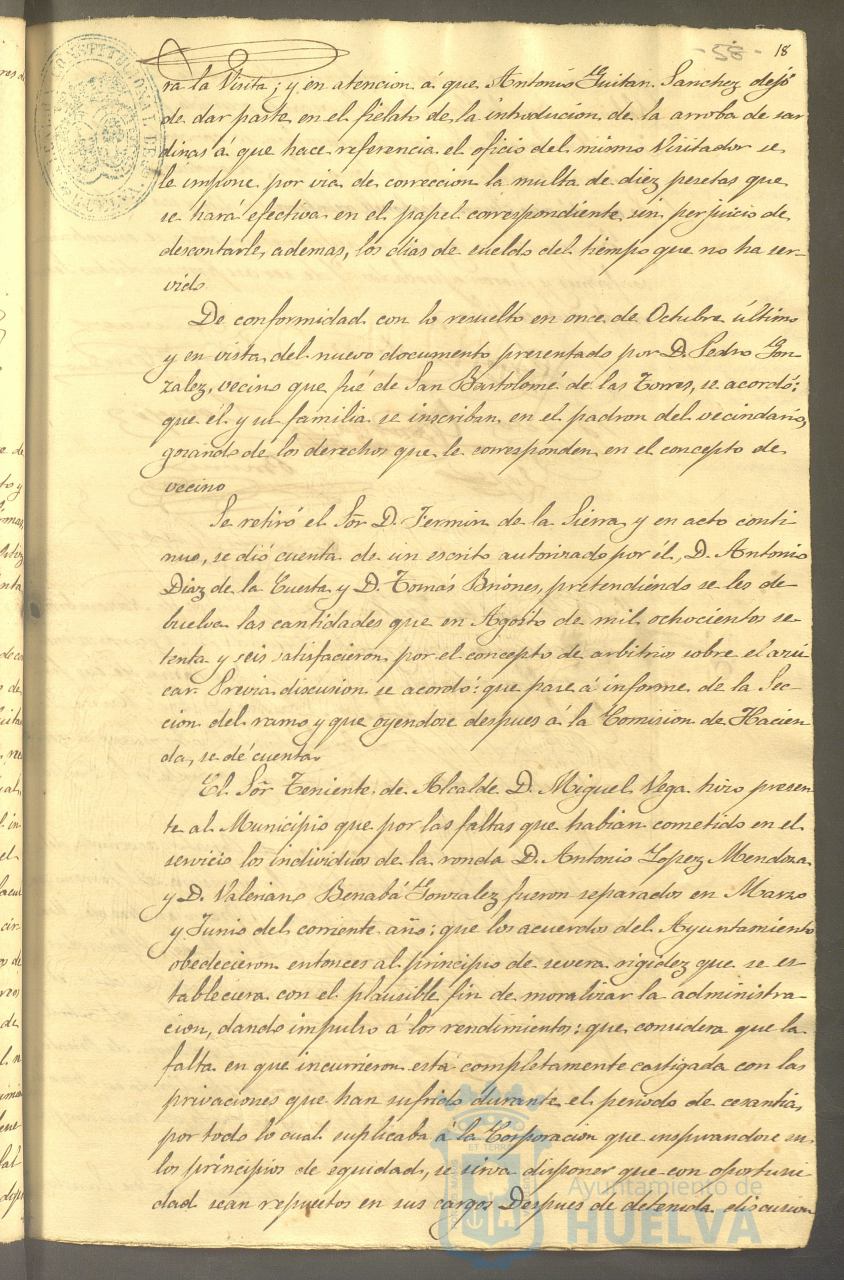 -58- 18
ra la Visita; y en atencion á que Antonio Guitan Sanchez dejó
de dar parte en el fielato de la introducion de la arroba de sar
dinas á que hace referencia el oficio del mismo Visitador se
le impone por via de correccion la multa de diez pesetas que
se hará efectiva en el papel correspondiente sin perjuicio de
descontarle, ademas, los dias de sueldo del tiempo que no ha ser-
vido
De conformidad con lo resuelto en once de Octubre último
y en vista del nuevo documento presentado por D. Pedro Gon
zalez, vecino que fué de San Bartolomé de las Torres, se acordó:
que él y su familia se inscriban en el padron del vecindario,
gozando de los derechos que le corresponden en el concepto de
vecino
Se retiró el Sor. D. Fermin de la Sierra y en acto conti-
nuo, se dió cuenta de un escrito autorizado por él, D. Antonio
Diaz de la Cuesta y D. Tomás Briones, pretendiéndo se les de-
buelva las cantidades que en Agosto de mil ochocientos se-
tenta y seis satisfacieron por el concepto de arbitrios sobre el azú
car. Previa discusion se acordó: que pase á informe de la Sec-
cion del ramo y que oyendose despues á la Comision de Hacien
da, se dé cuenta
El Sor. Teniente de Alcalde D. Miguel Vega hizo presen
te al Municipio que por las faltas que habian cometido en el
servicio los individuos de la ronda D. Antonio Lopez Mendoza
y D. Valeriano Benabá Gonzalez fueron separados en Marzo
y Junio del corriente año: que los acuerdos del Ayuntamiento
obedecieron entonces al principio de severa rigidez que se es
tableciera con el plausible fin de moralizar la administra-
cion, dando impulso á los rendimientos: que considera que la
falta en que incurrieron está completamente castigada con las
privaciones que han sufrido durante el periodo de cesantia,
por todo lo cual suplicaba á la Corporacion que inspirandose en
los principios de equidad, se sirva disponer que con oportuni-
dad sean repuestos en sus cargos Despues de detenida discusion
Ayuntamiento de
HUELVA